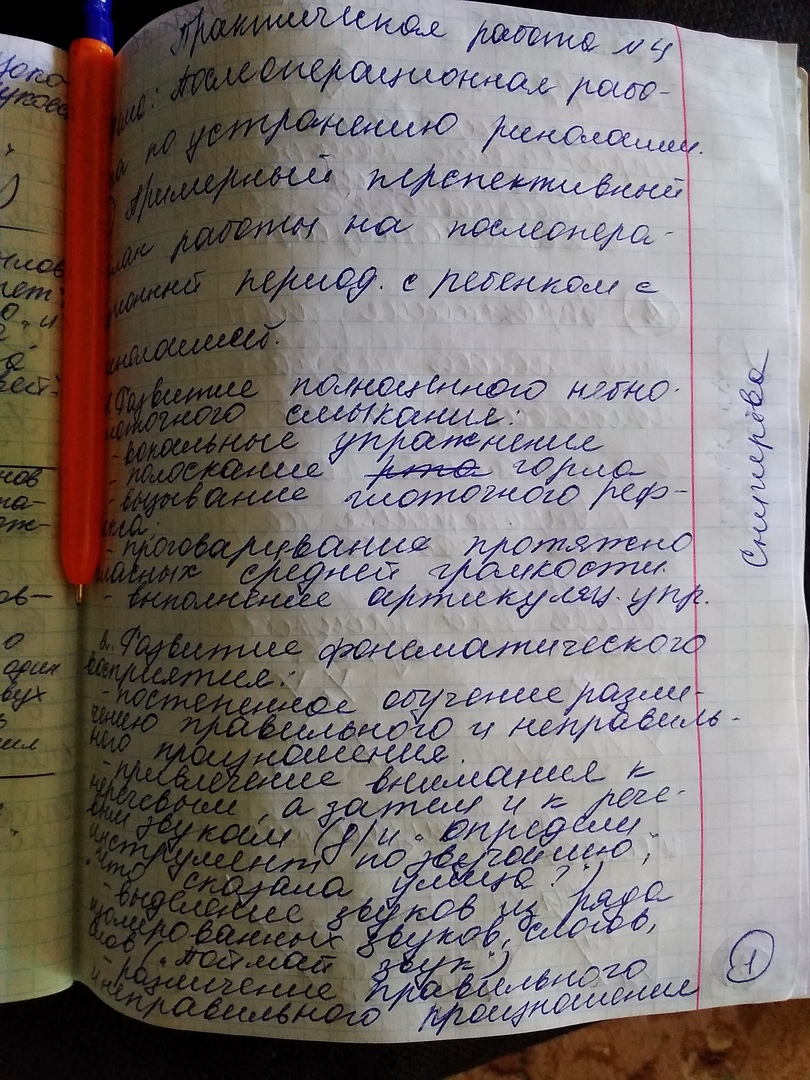 Практическая работа №4
Тема: Послеоперационная рабо-
та по устранению ринолалии.
Примерный перспективный
план работы на послеопера-
ционный период. с ребенком с
ринолалией.
1. Развитие полноценного небно-
глоточного смыкания:
- вокальные упражнение
- полоскание рта горла
- вызывание глоточного реф-
лекса;
- проговаривание протяжно
гласных средней громкости.
- выполнение артикуляц. упр.
2. Развитие фонематического
восприятия:
- постепенное обучение разли-
чению правильного и неправиль-
ного произношения.
- привлечение внимания к
неречевым, а затем и к рече-
вым звукам (д/и "Определи
инструмент по звучанию",
"Что сказала улица?")
- выделение звуков из ряда
изолированных звуков, слогов,
слов ("Поймай звук")
- различение правильного
и неправильного произношение
Снигерёва
1
цоко
зуков
нов
о
один
двух